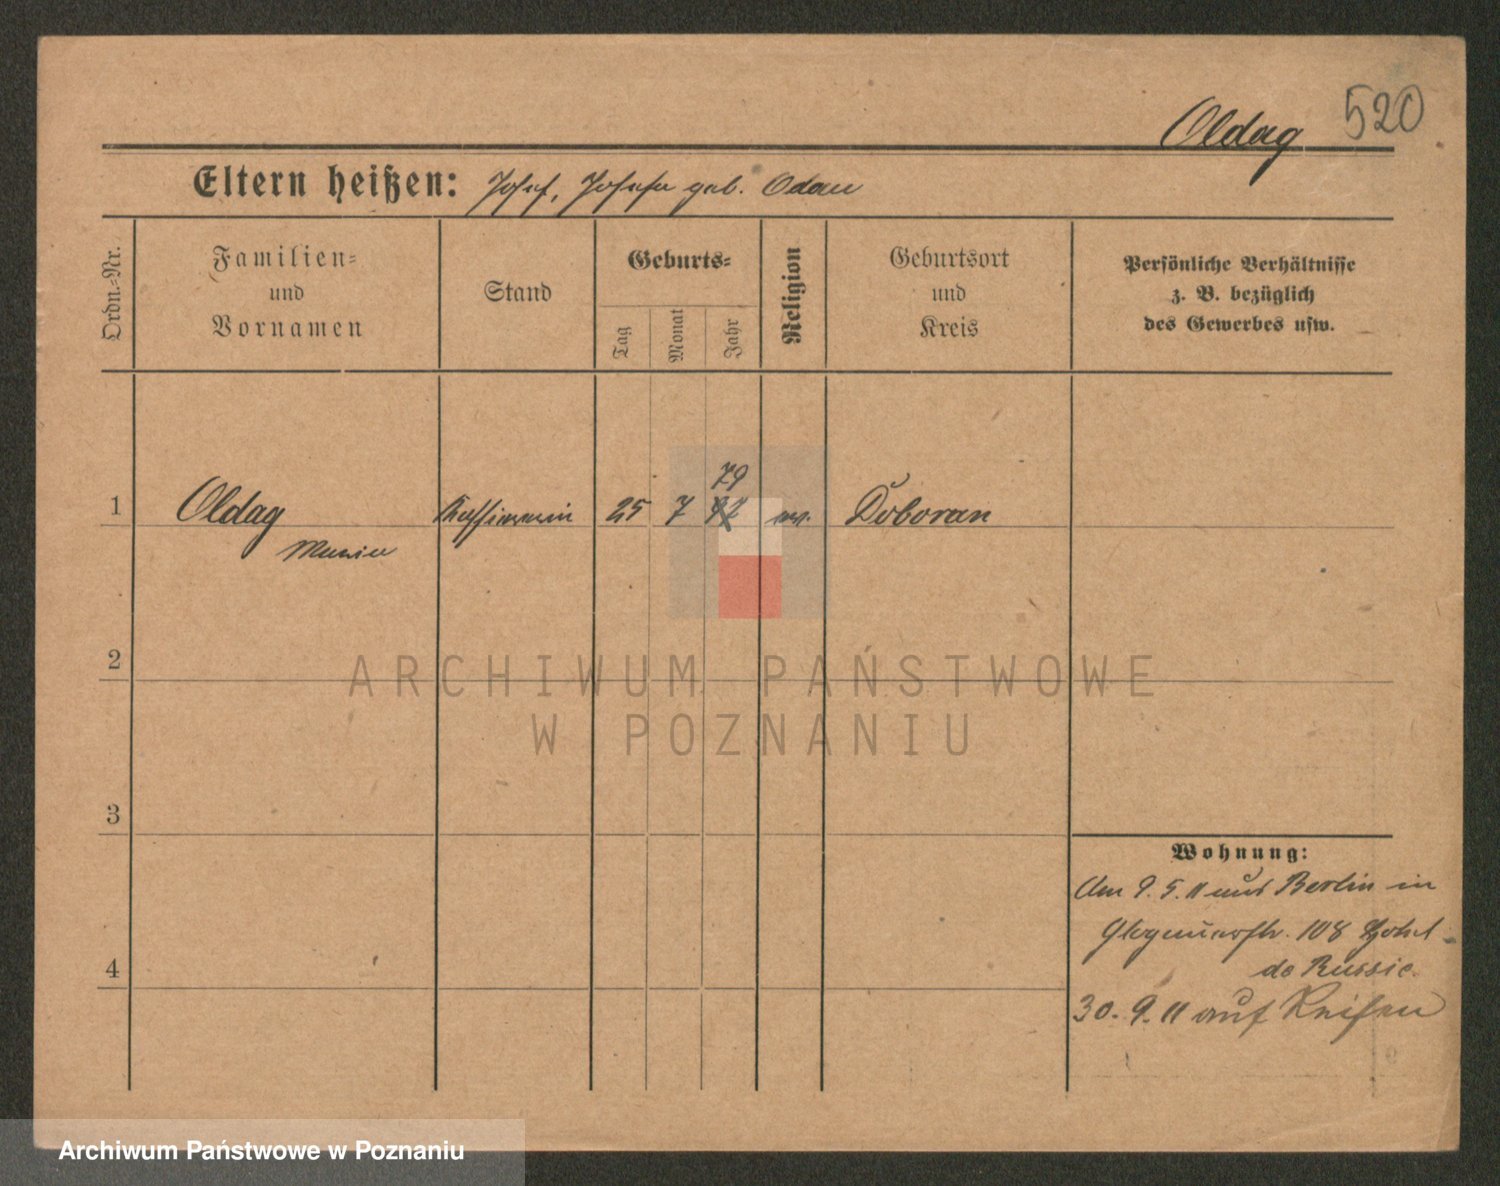 520
Oldag
Eltern heißen: Josef, Josefa geb. Odau
Ordn.-Nr.
Familien-
und
Vornamen
Stand
Geburts-
Tag
Monat
Jahr
Religion
Geburtsort
und
Kreis
Persönliche Verhältnisse
z. B. bezüglich
des Gewerbes usw.
79
1 Oldag Kassiererin 25 7 ev. Doboran
Maria
2
ARCHIWUM PAŃSTWOWE
W POZNANIU
3
Wohnung:
Am 9. 5. 11 aus Berlin in
Glogauerstr. 108 Hotel
de Russie.
4
30. 9. 11 auf Reisen
Archiwum Państwowe w Poznaniu